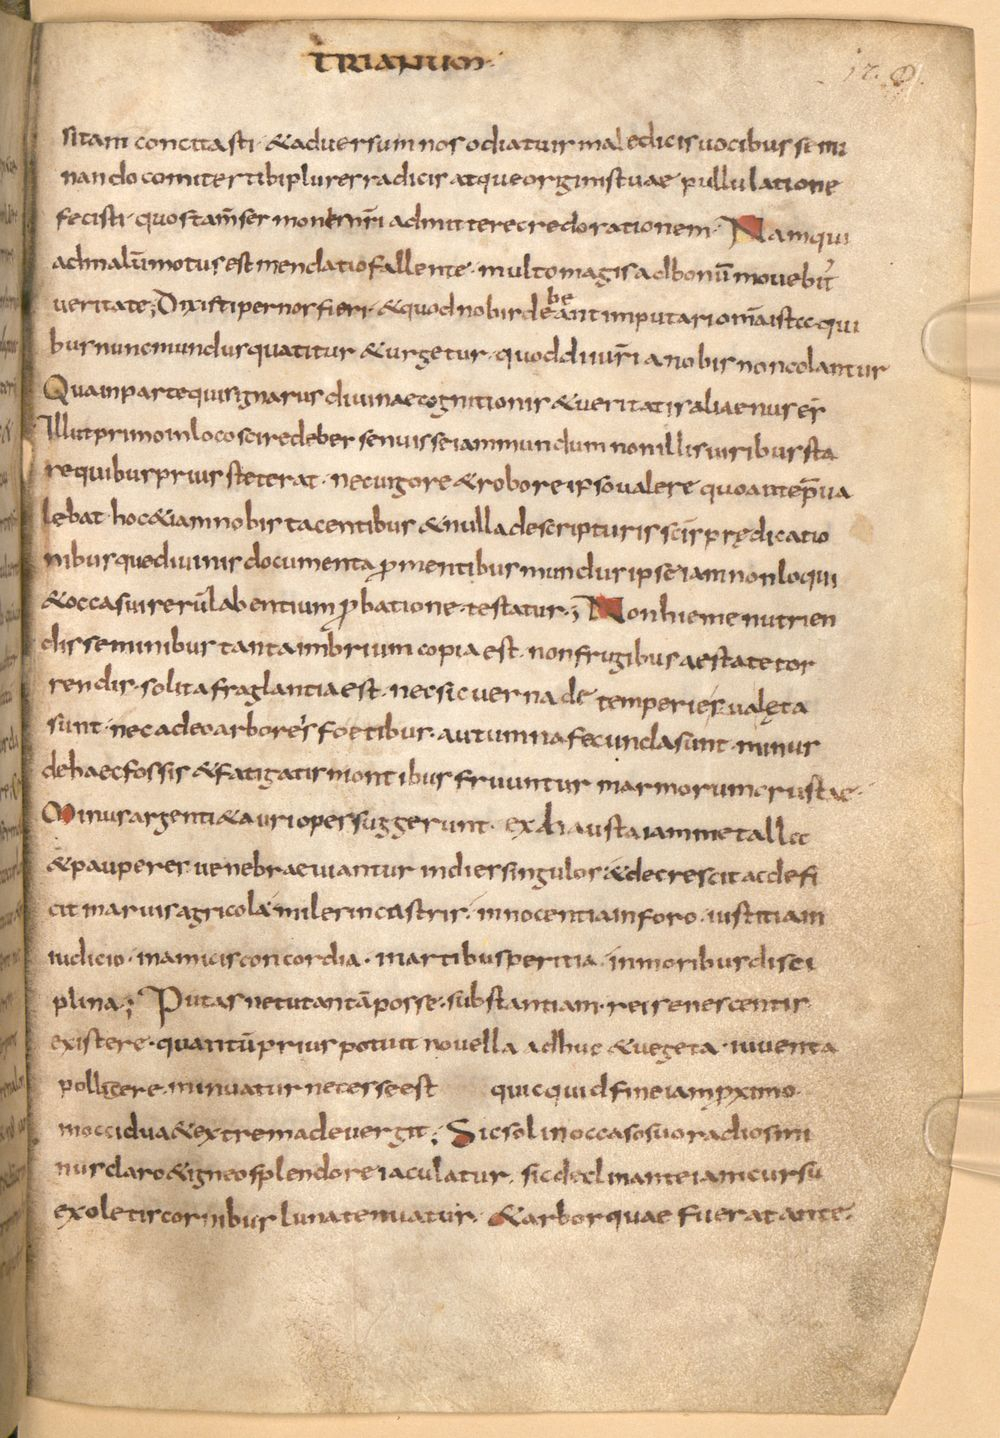 TRIANUM·
17.
sitam concitasti· &adversum nos odiatuis maledicis vocibus semi
nando comites tibi plures radicis atque originis tuae pullulatione
fecisti· quos tam̄ sermonem nr̄i admittere credo rationem· Nam qui
ad malū motus est mendatio fallente· multo magis ad bonū movebit̄
veritate; Dixisti per nos fieri· &quod nobis debeant imputari om̄a ista qui
bus nunc mundus quatitur &urgetur· quod dii vr̄i a nobis non colantur
Qua in parte qui signarus divinae cognitionis &veritatis alienus es̄
Illut primo in loco scire debes senuisse iam mundum non illis viribus sta
re quibus prius steterat· nec vigore &robore ipso valere quo ante p̄va
lebat· hoc &iam nobis tacentibus &nulla de scripturis scīs prędicatio
nibus que divinis documenta ꝓmentibus mundus ipse iam non loqui
&occasui rerū labentium ꝓbatione· testatur·; Non hieme nutrien
dis seminibus tanta imbrium copia est· non frugibus aestate tor
rendis· solita fraglantia est· nec sic verna de temperies valęta
sunt· nec adeo arbores foetibus· autumna fecunda sunt· minus
de haec fossis &fatigatis montibus fruuntur marmorum crustae·
Minus argenti &auri opes suggerunt· exhausta iam metalla
&pauperes venebraeviantur in dies singulos &decrescit ac defi
cit marvis agricola· miles in castris· innocentia in foro· iustitia in
iudicio· in amicis concordia· in artibus peritia in moribus disci
plina·; Putas ne tu tantā posse· substantiam· rei senescentis
existere· quantū prius potuit novella adhuc &vegeta· iuventa
pollicere· minuatur necesse est quicquid fine iam ꝓximo·
in occidua &extrema devergit·; Sic sol in occaso suo radios mi
nus claro &igneo splendore iaculatur· sic declinante iam cursu
exoletis cornibus luna tenuatur· &arbor quae fuerat ante·